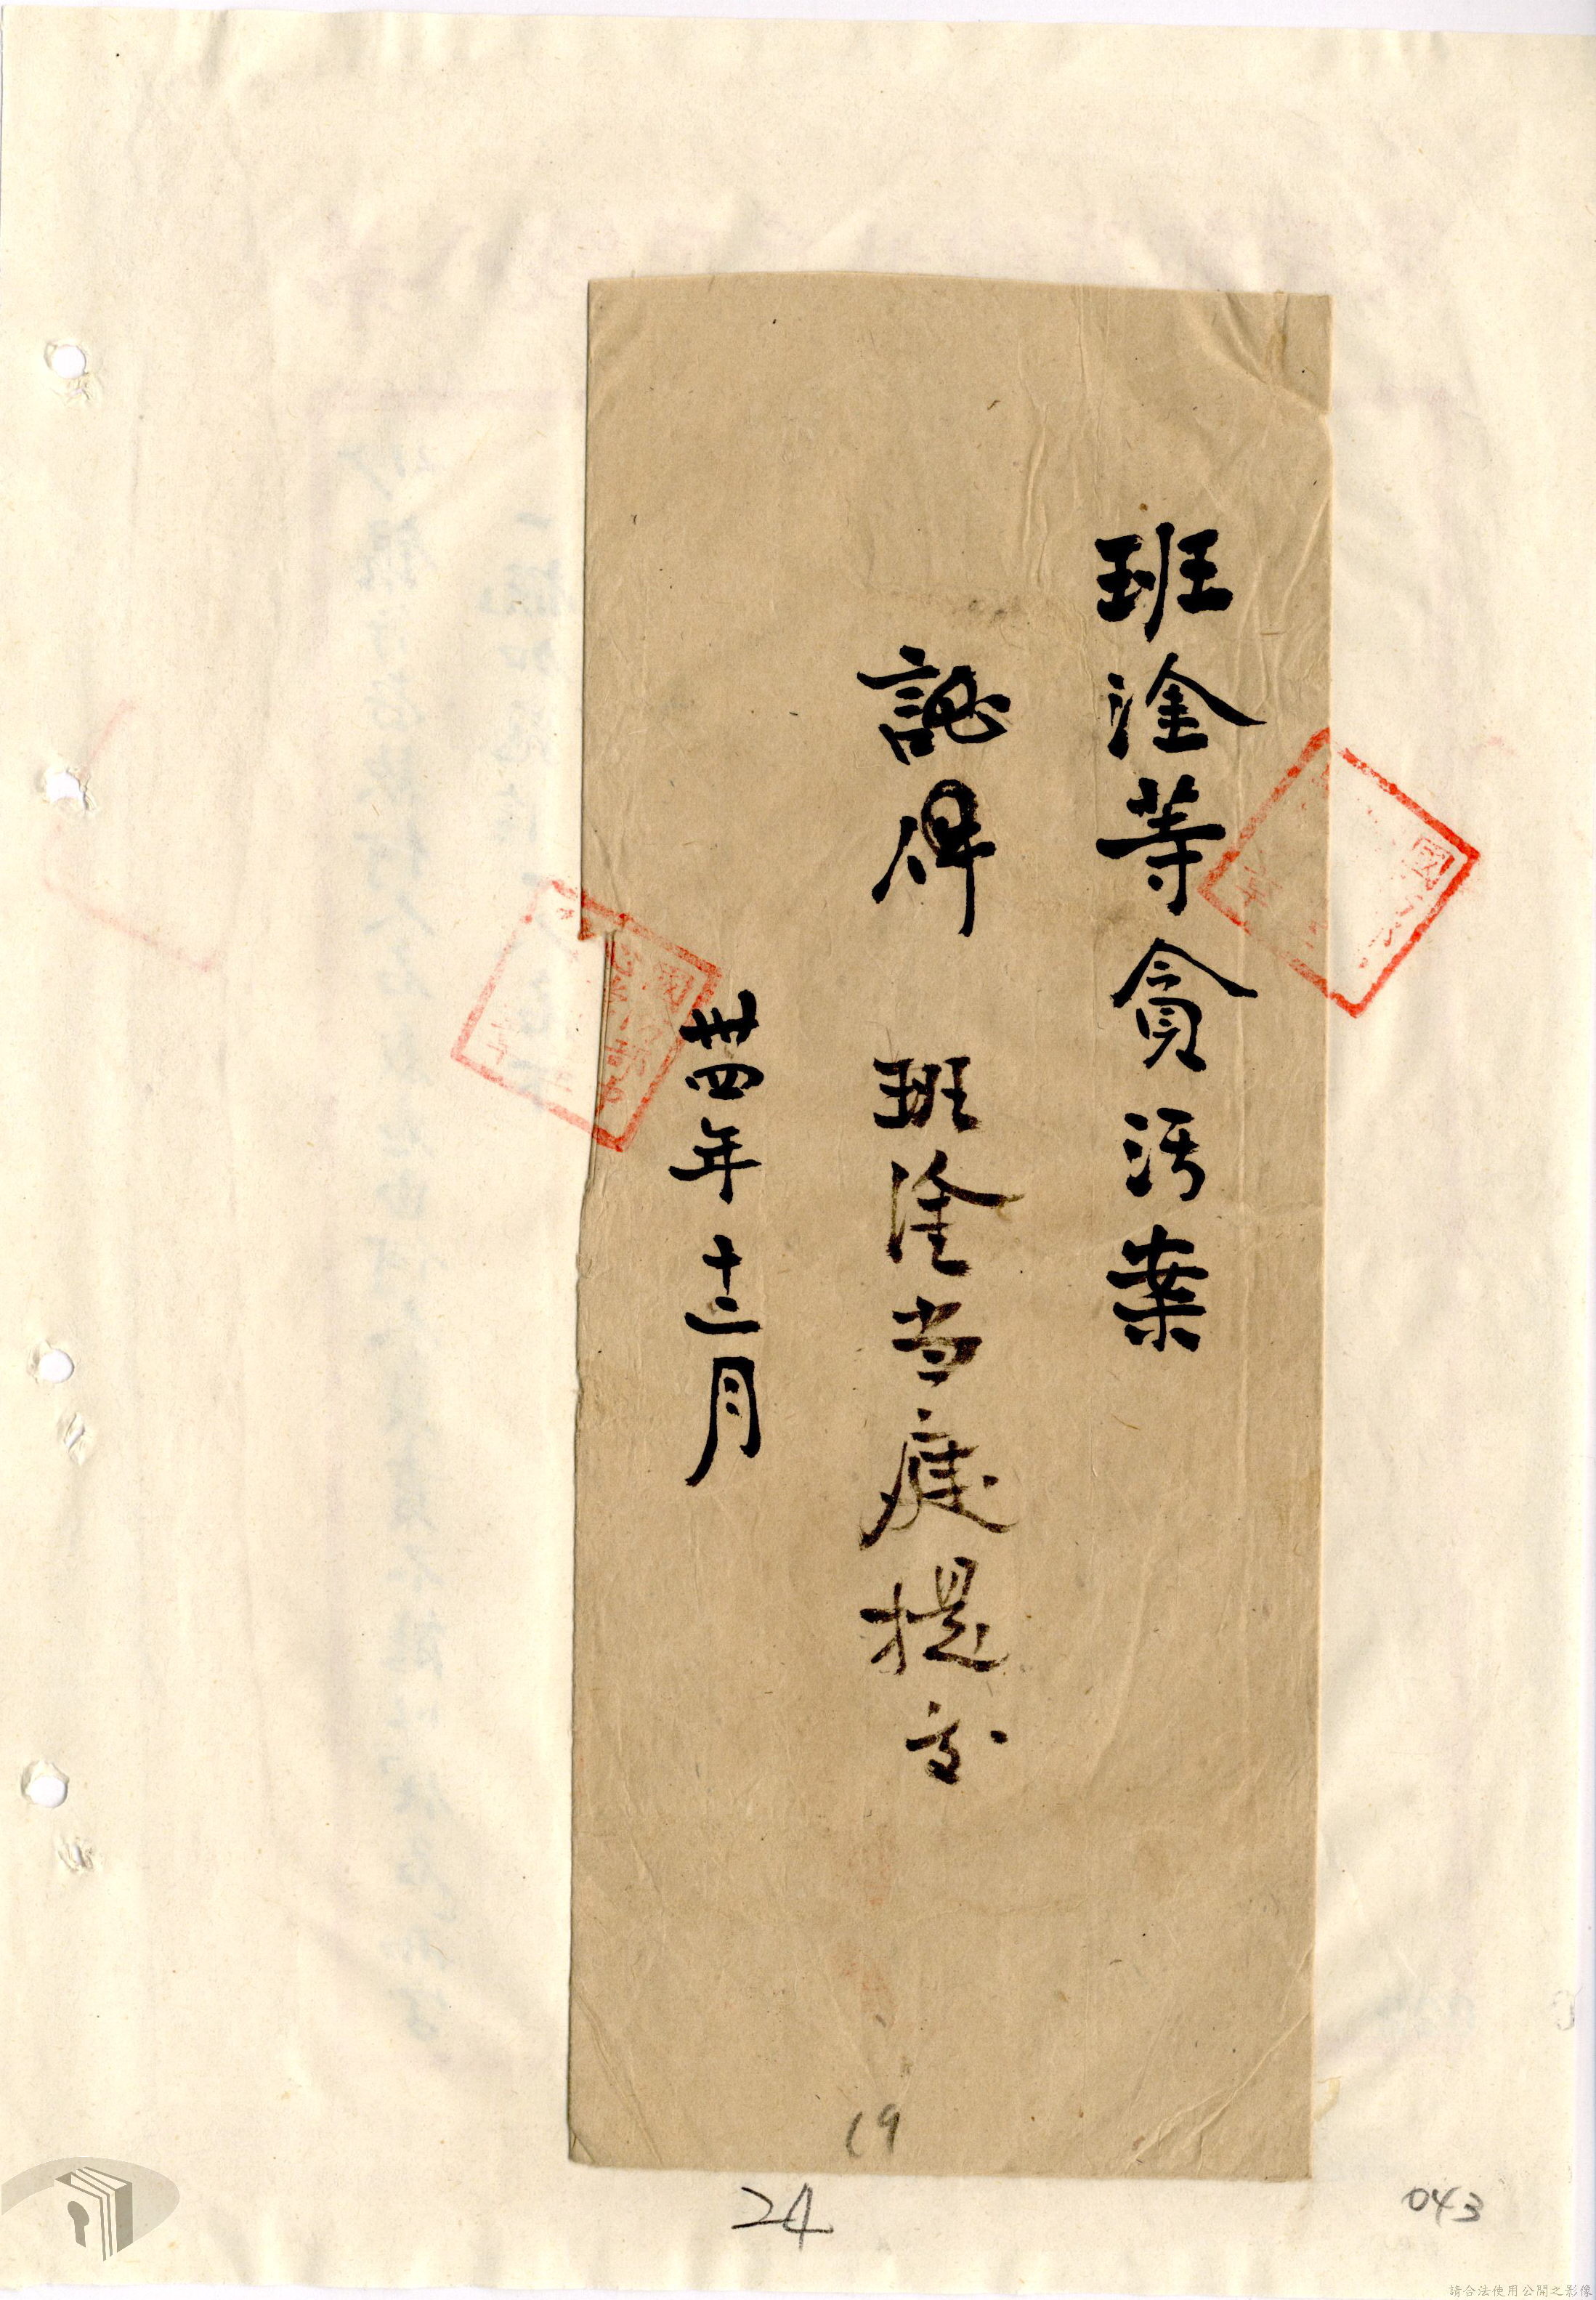 班淦等貪污案
班淦当庭提交
卅四年十二月
19
24
043
請合法使用公開之影像